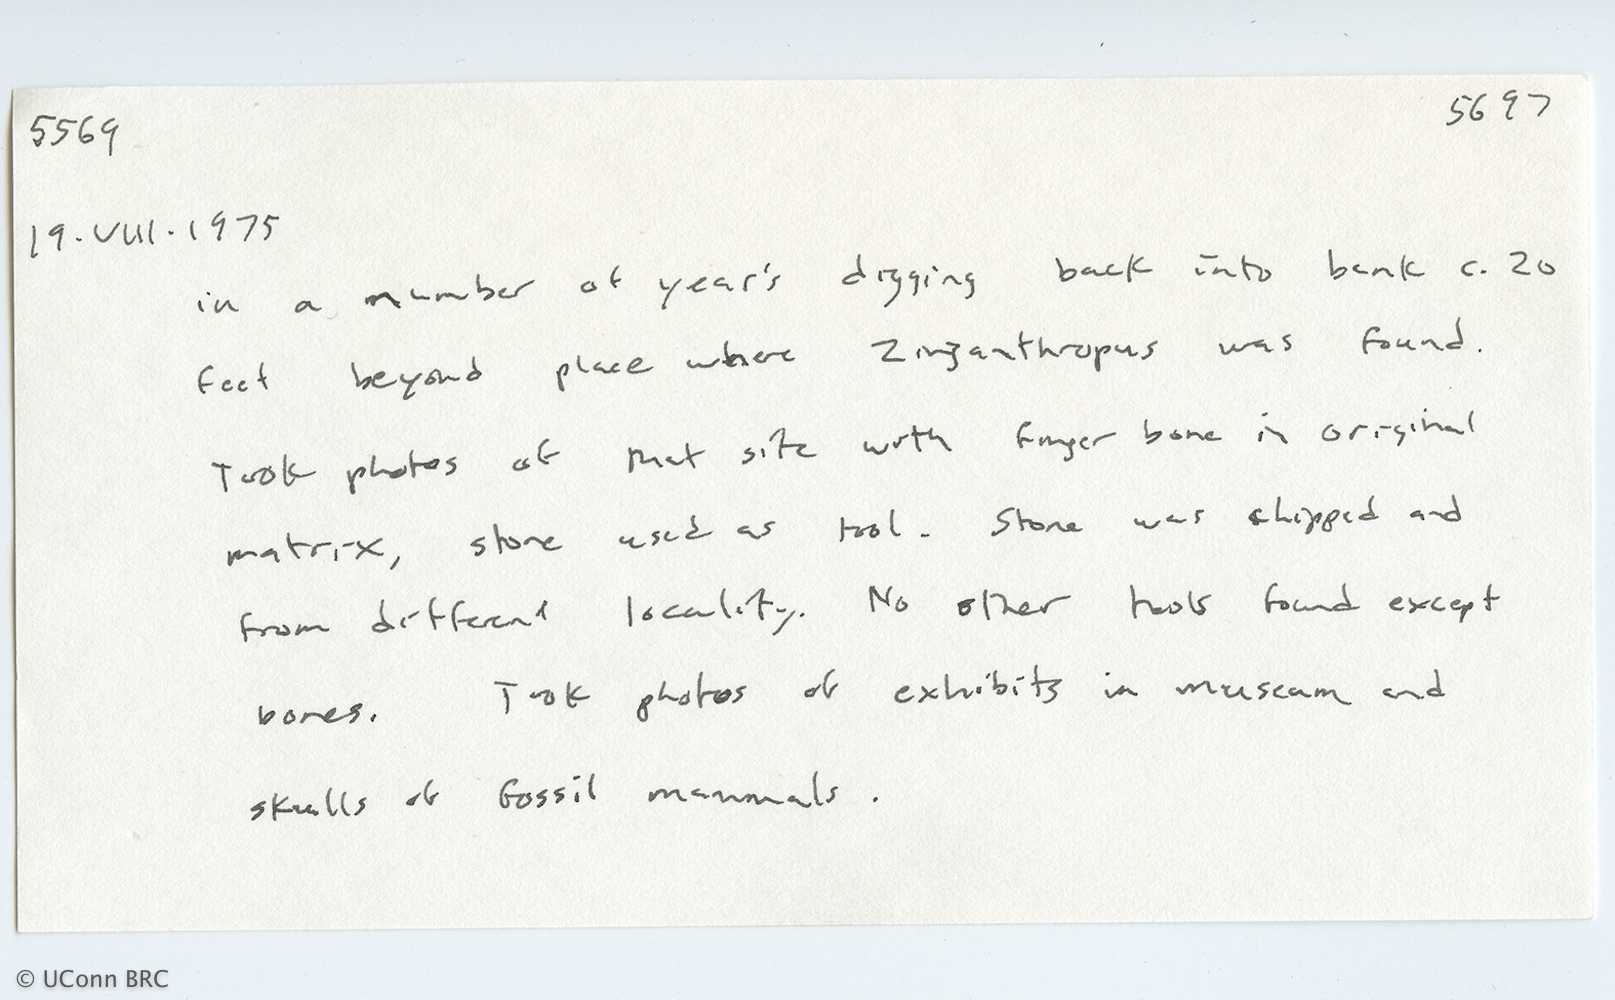 5569
5697
19.VIII.1975
in a number of year's digging back into bank c. 20
feet beyond place where Zinjanthropus was found.
Took photos of that site with finger bone in original
matrix, stone used as tool. Stone was chipped and
from different locality. No other tools found except
bones. Took photos of exhibits in museum and
skulls of fossil mammals.
© UConn BRC